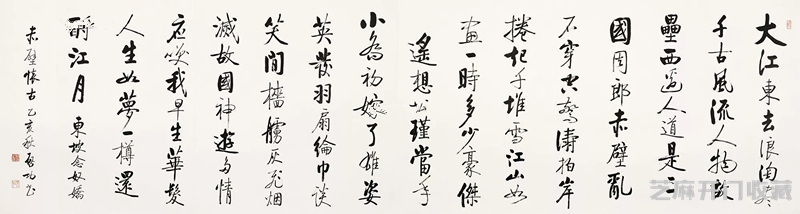 大江东去浪淘尽
千古風流人物故
壘西邊人道是三
國周郎赤壁亂
石穿空驚濤拍岸
捲起千堆雪江山如
畫一時多少豪傑
遙想公瑾當年
小喬初嫁了雄姿
英發羽扇綸巾談
笑間檣艣灰飛烟
滅故國神遊多情
應笑我早生華髮
人生如夢一樽還
酹江月 東坡念奴嬌
赤壁懷古 乙亥秋 啟功书
芝麻开门收藏